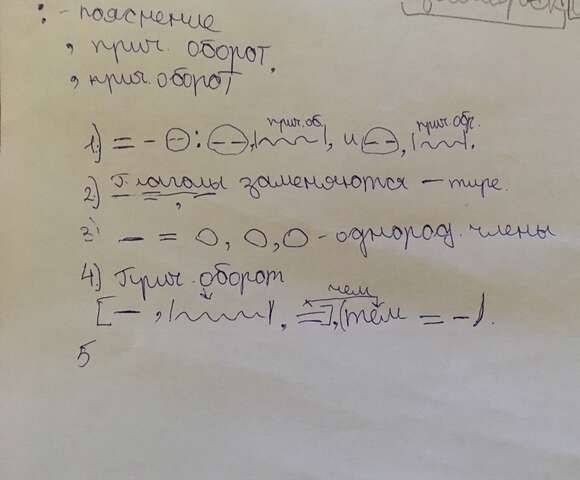 : - пояснение
, прич. оборот,
, прич. оборот
прич. об. прич. обр.
1.) = - ⊖ : ⊖, |~~~|, и ⊖, |~~~|.
2.) Глаголы заменяются - тире.
3) — = О, О, О - однород. члены
4.) Прич. оборот
чем
[—, |~~~|, =], (тем = -).
5